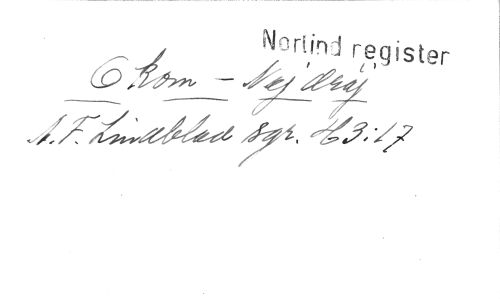 Norlind register
O kom - Nej dröj
A. F. Lindblad sgr. H3:17